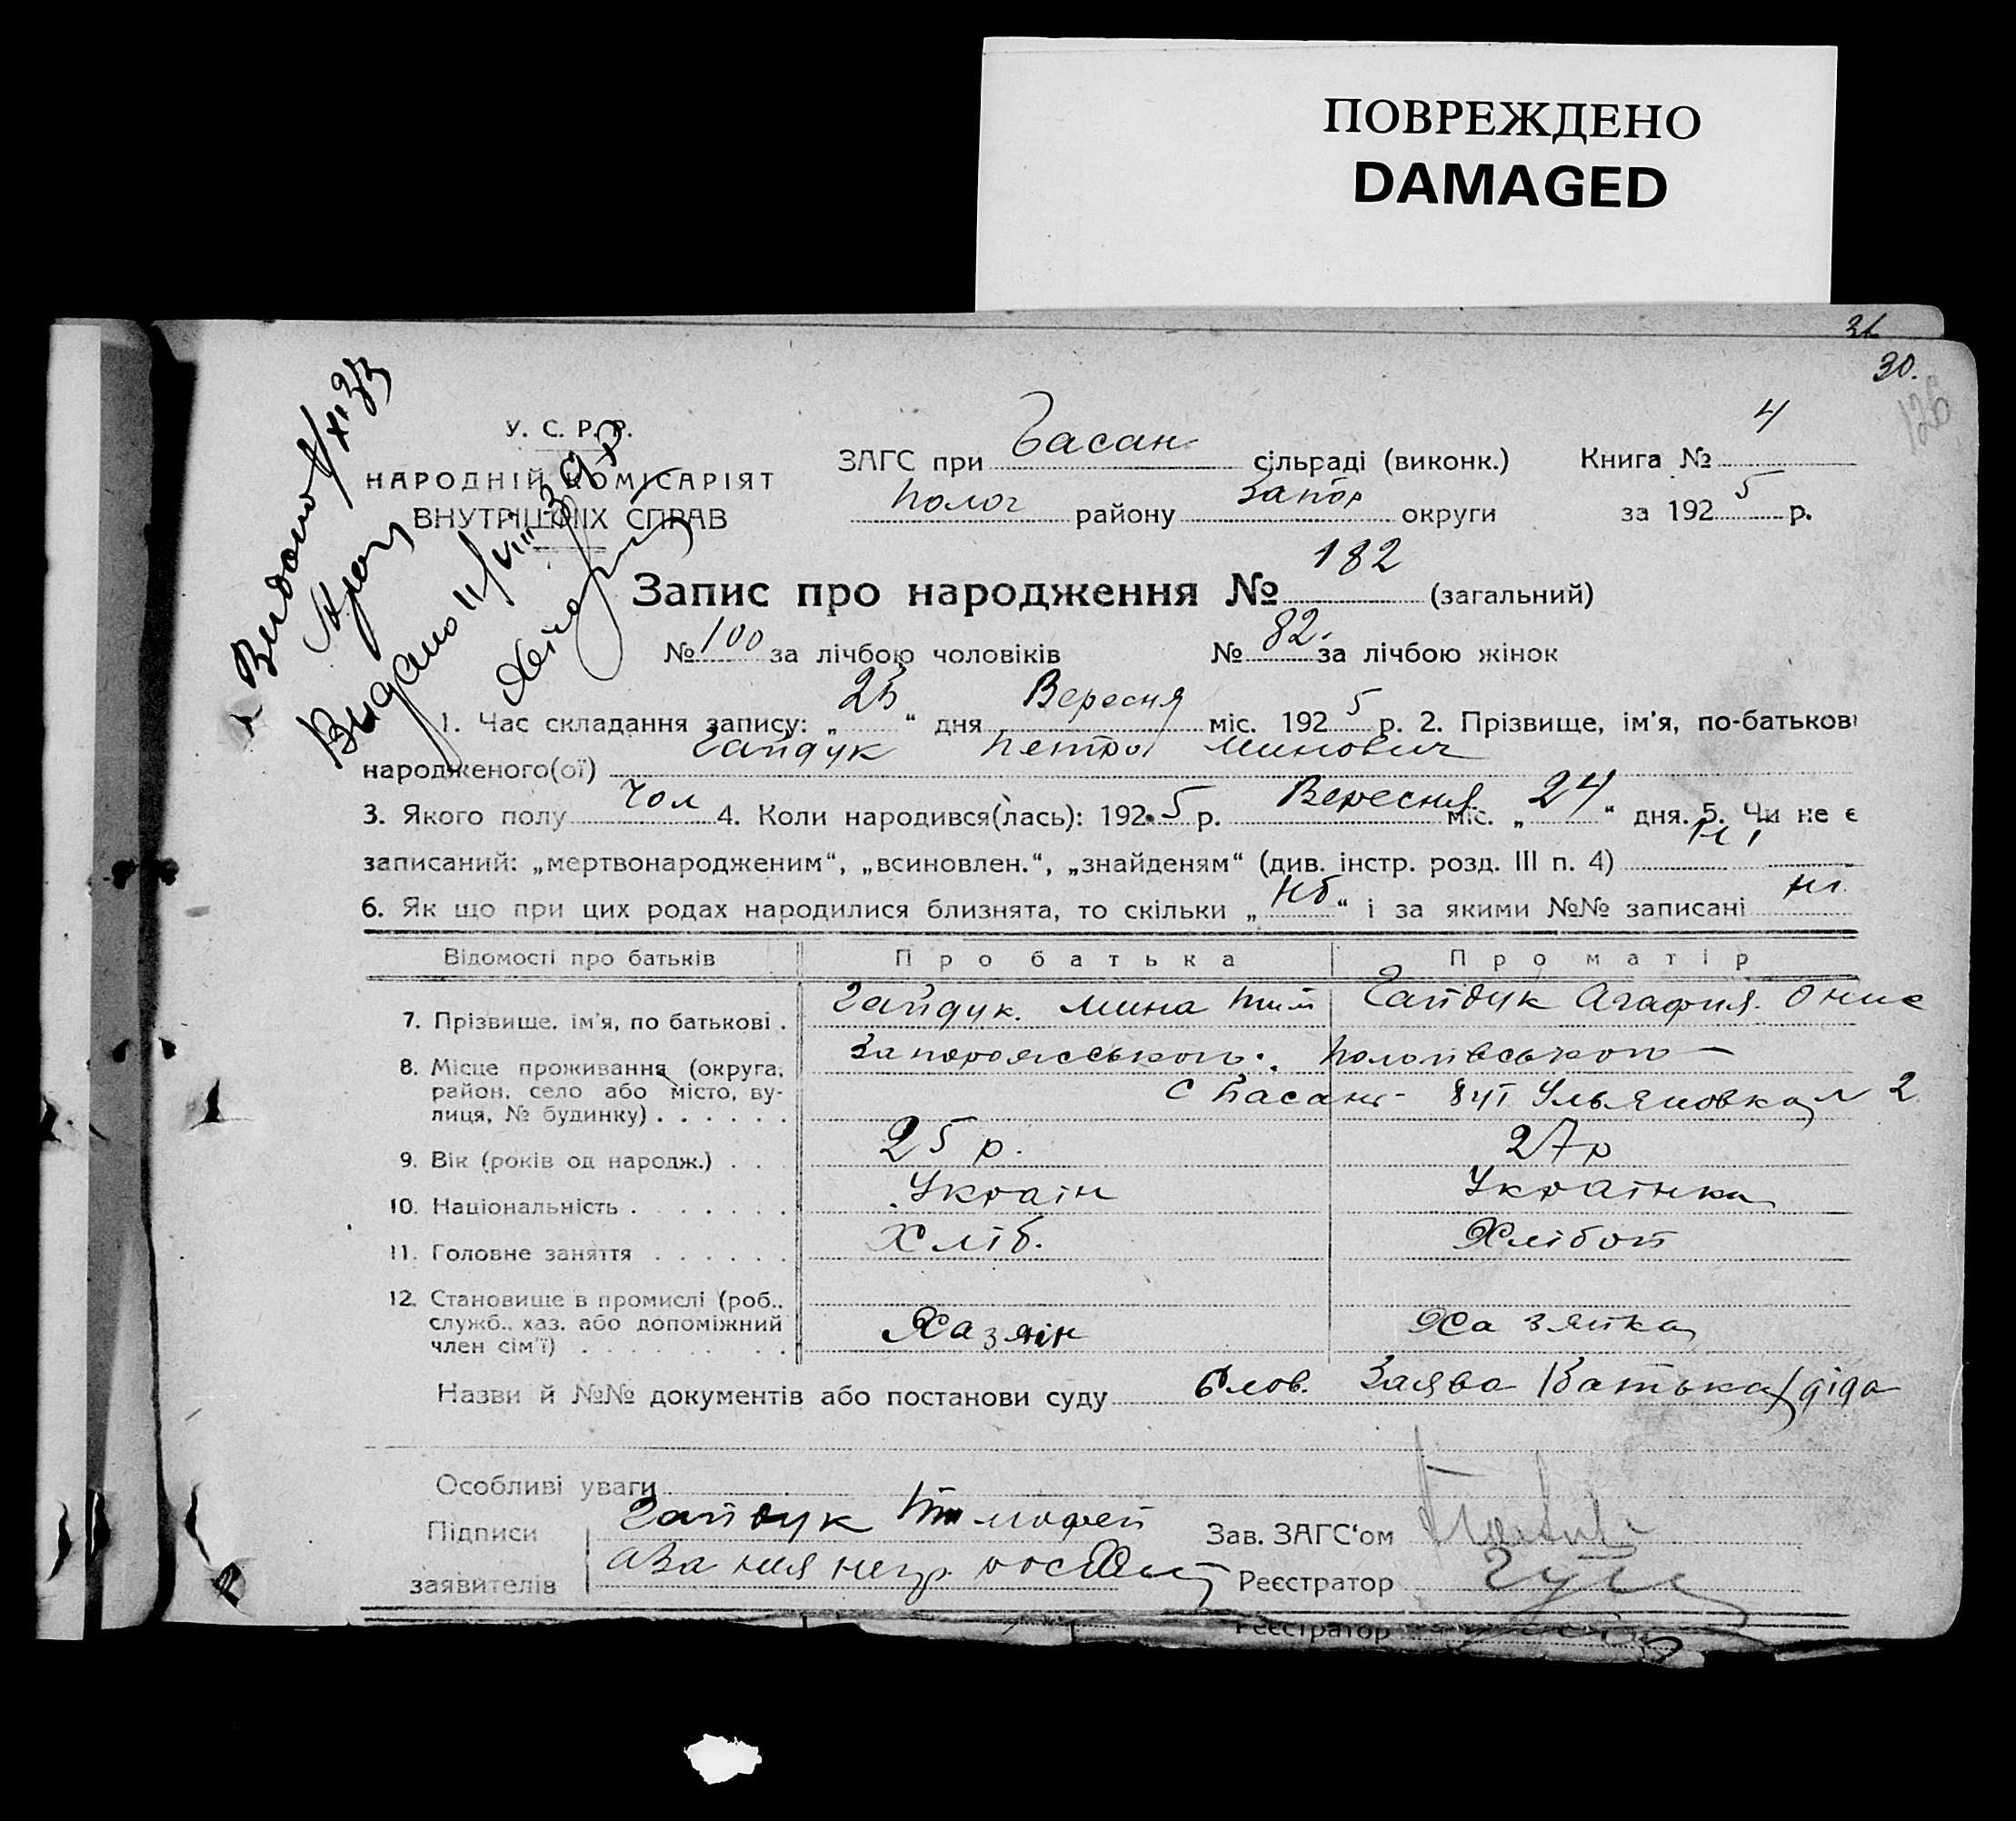 ПОВРЕЖДЕНО
DAMAGED
30.
126
У. С. Р. Р.
НАРОДНІЙ КОМІСАРІЯТ
ВНУТРІШНІХ СПРАВ
Видано
Видано 11/VIII
ЗАГС при Басан сільраді (виконк.) Книга № 4
Полог району Запор округи за 1925 р.
Запис про народження № 182 (загальний)
№ 100 за лічбою чоловіків № 82. за лічбою жінок
1. Час складання запису: „25“ дня Вересня міс. 1925 р. 2. Прізвище, ім'я, по-батькові
народженого(ої) Гайдук Петро Минович
3. Якого полу Чол 4. Коли народився(лась): 1925 р. Вересня міс. „24“ дня. 5. Чи не є
записаний: „мертвонародженим“, „всиновлен.“, „знайденям“ (див. інстр. розд. III п. 4) ні
6. Як що при цих родах народилися близнята, то скільки „ “ і за якими №№ записані ні
Відомості про батьків Про батька Про матір
7. Прізвище, ім'я, по батькові . Гайдук. Мина Тим Гайдук Агафия Онис
8. Місце проживання (округа, район, село або місто, вулиця, № будинку) . . . . . . Запорожського. Пологівського —
С Басань - Ульяновка № 2
9. Вік (років од народж.) . . 25 р. 27 р
10. Національність . . . . . . . Україн Українка
11. Головне заняття . . . . . . Хліб. Хлібоп
12. Становище в промислі (роб., служб., хаз. або допоміжний член сім'ї) . . . . . . . . . Хазяін Хазяйка
Назви й №№ документів або постанови суду Слов. Заява /Батька/ діда
Особливі уваги
Підписи Гайдук Тимофей Зав. ЗАГС'ом
заявителів а за нея негр. Реєстратор
Реєстратор